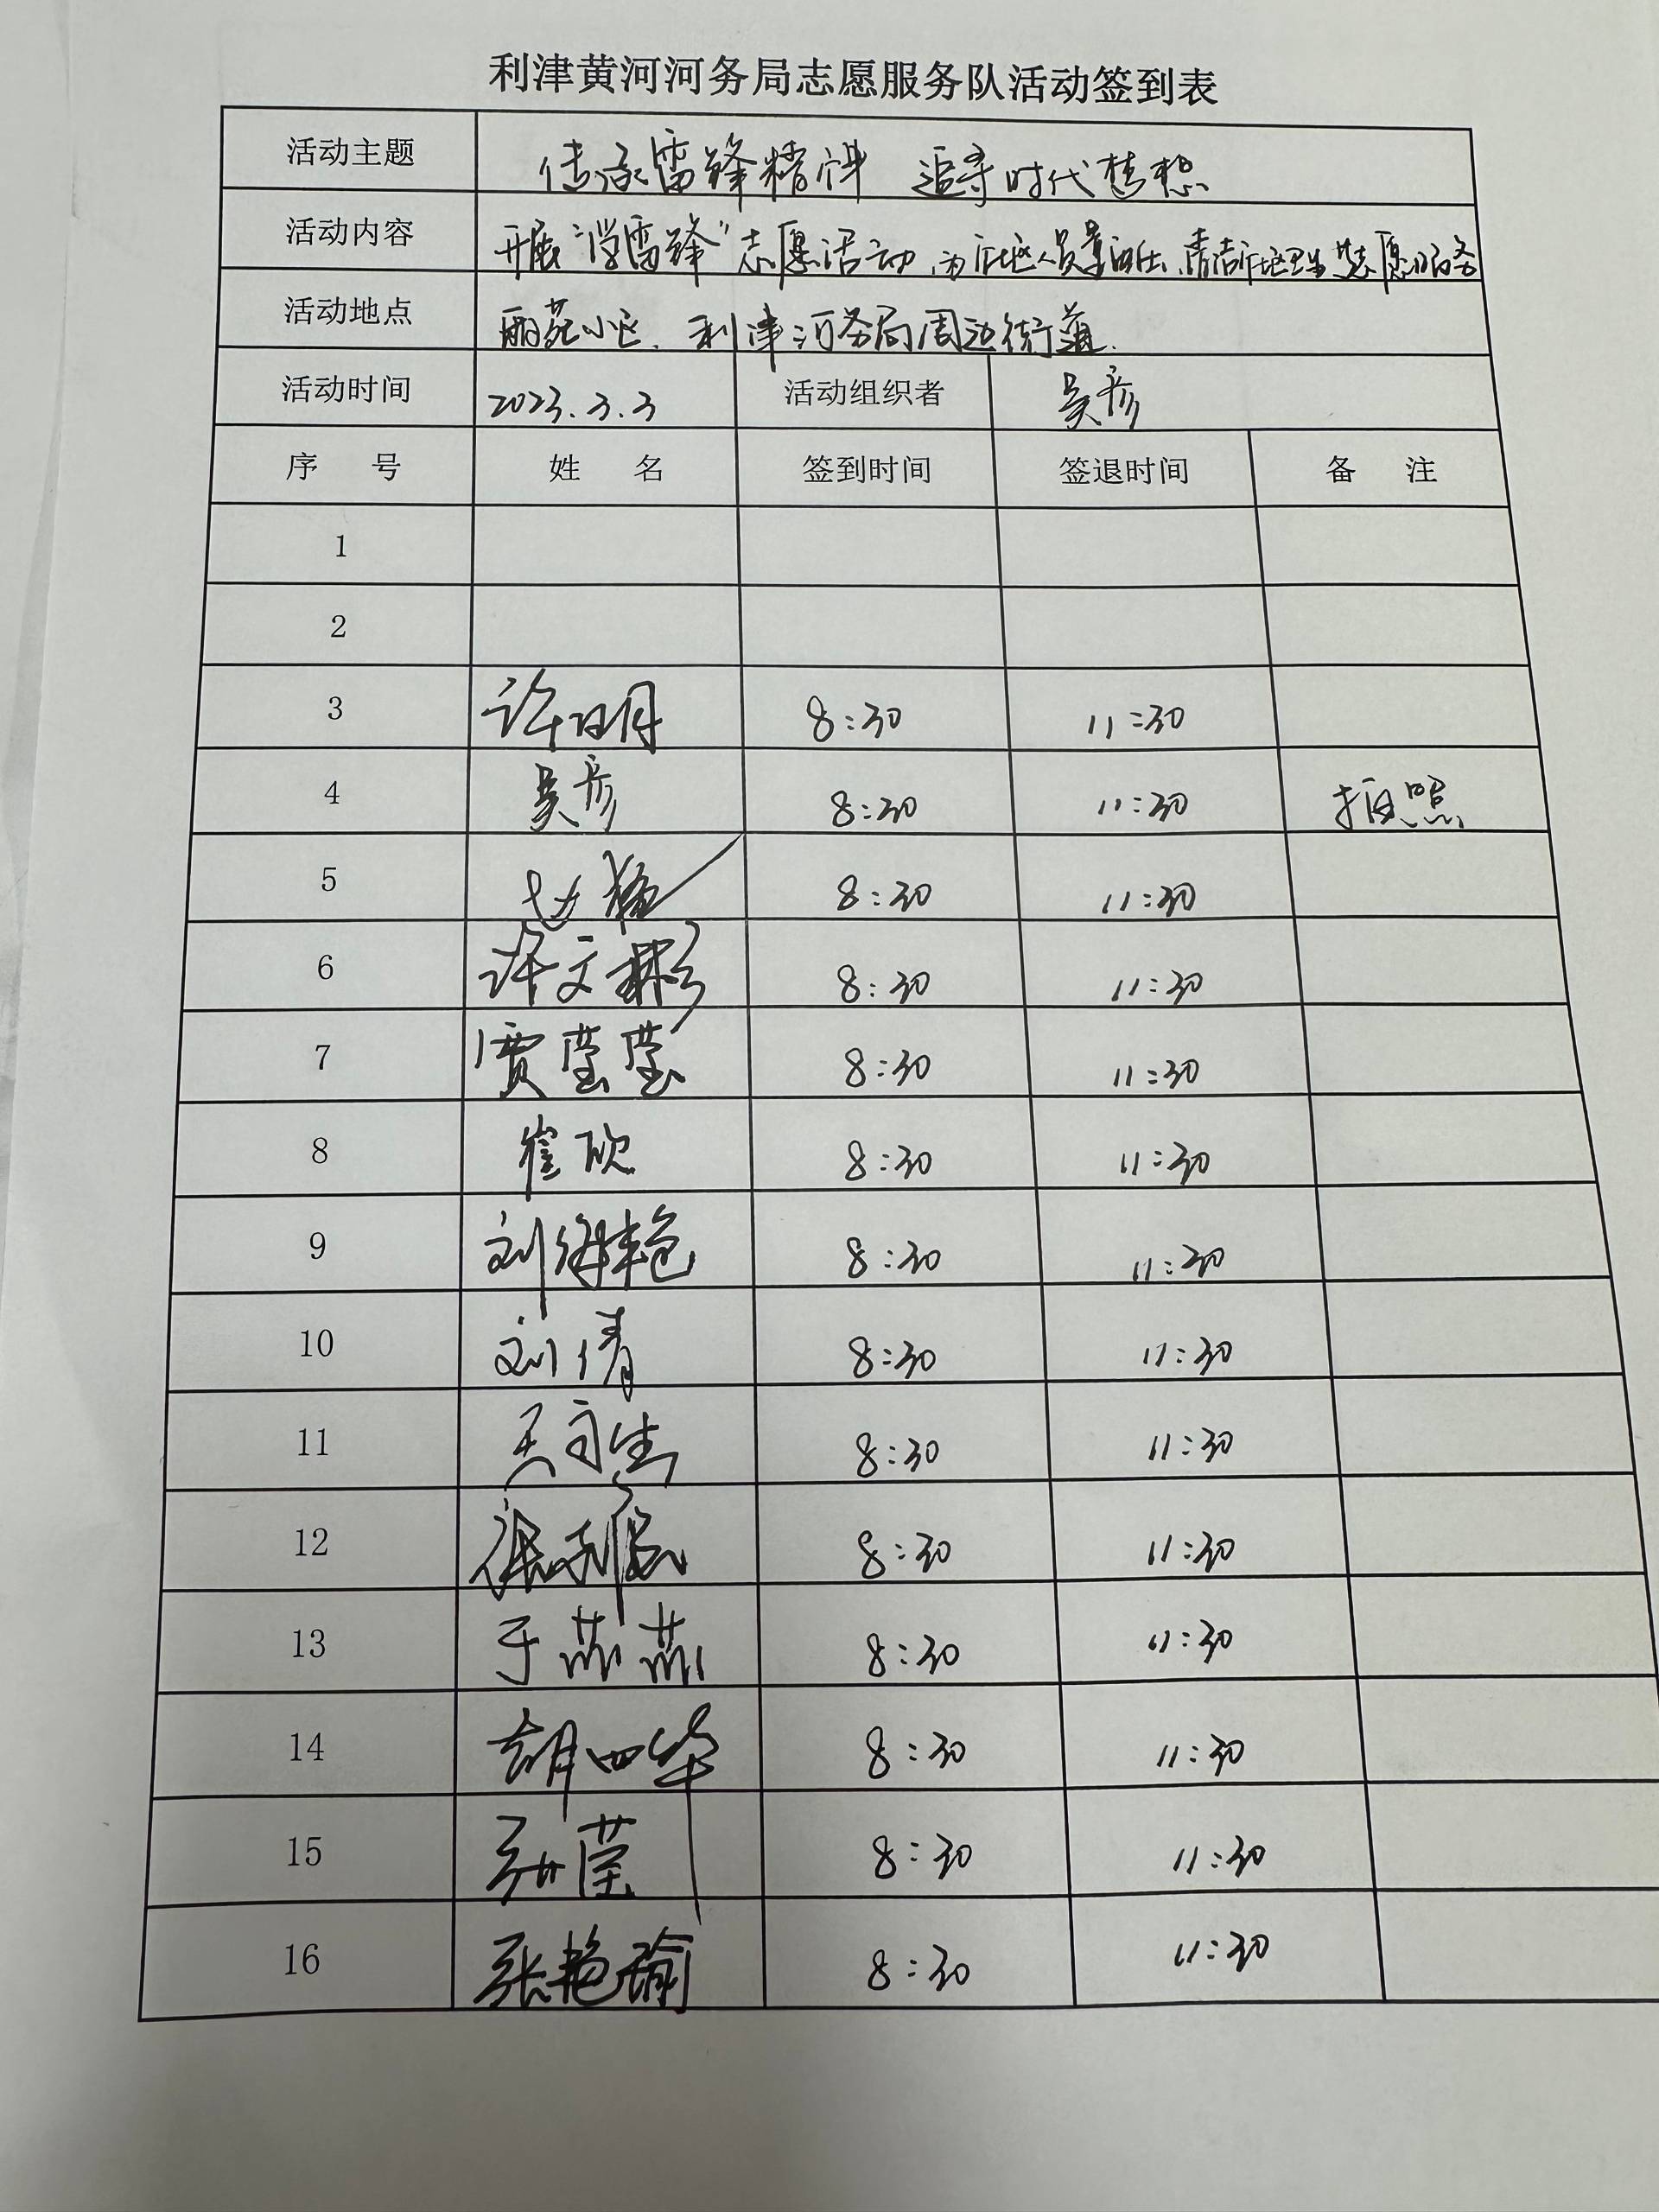 利津黄河河务局志愿服务队活动签到表
活动主题 传承雷锋精神 追寻时代梦想
活动内容 开展“学雷锋”志愿活动，为社区人员 清洁社区 志愿服务
活动地点 丽苑小区、利津河务局周边街道.
活动时间 2023.3.3 活动组织者 吴彦
序 号 姓 名 签到时间 签退时间 备 注
1
2
3 许明月 8:30 11:30
4 吴彦 8:30 11:30 拍照
5 8:30 11:30
6 许文彬 8:30 11:30
7 贾莹莹 8:30 11:30
8 崔欣 8:30 11:30
9 刘海艳 8:30 11:30
10 刘倩 8:30 11:30
11 8:30 11:30
12 8:30 11:30
13 于茹茹 8:30 11:30
14 胡四华 8:30 11:30
15 8:30 11:30
16 张艳瑜 8:30 11:30